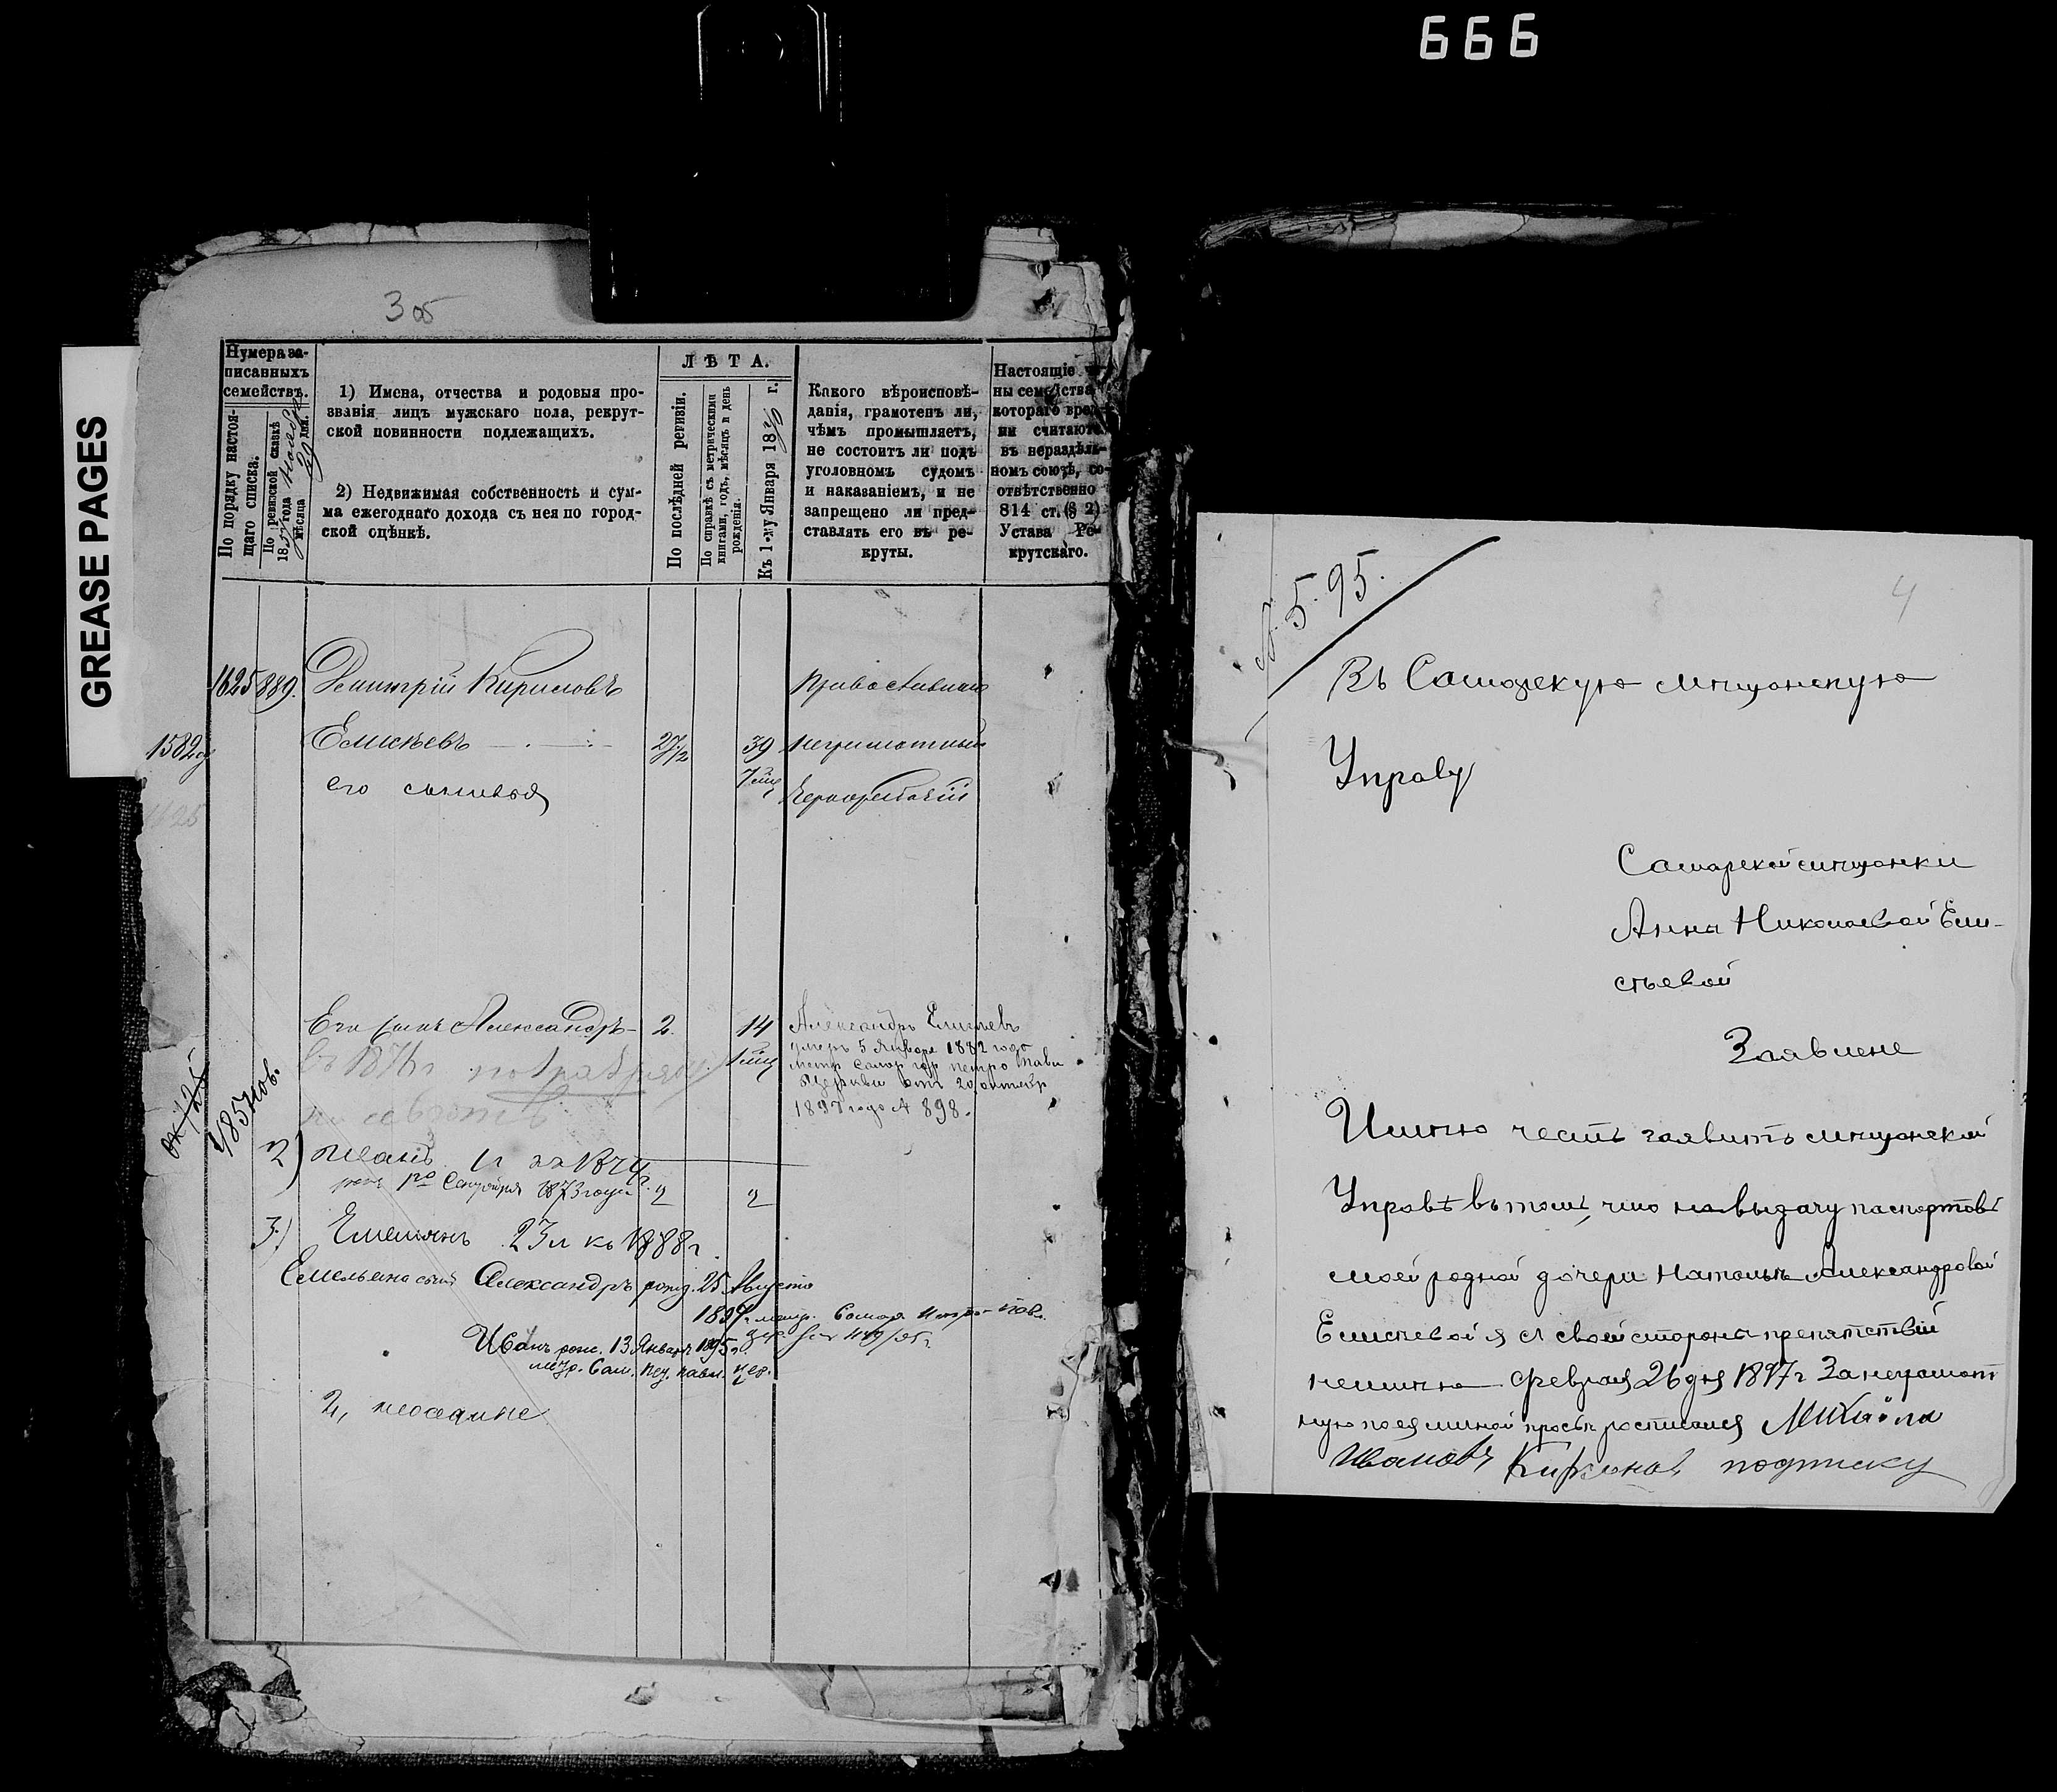 666
GREASE PAGES
3 об
Нумера за-
писанныхъ
семействъ.
По порядку настоя-
щаго списка.
По ревизской сказкѣ
18 года
мѣсяца 29 дня.
1) Имена, отчества и родовыя про-
званія лицъ мужскаго пола, рекрут-
ской повинности подлежащихъ.
2) Недвижимая собственность и сум-
ма ежегоднаго дохода съ нея по город-
ской оцѣнкѣ.
ЛѢТА.
По послѣдней ревизіи.
По справкѣ съ метрическими
книгами, годъ, мѣсяцъ и день
рожденія.
Къ 1-му Января 18 г.
Какого вѣроисповѣ-
данія, грамотенъ ли,
чѣмъ промышляетъ,
не состоитъ ли подъ
уголовномъ судомъ
и наказаніемъ, и не
запрещено ли пред-
ставлять его въ ре-
круты.
Настоящіе чле-
ны семейства
котораго вре-
ни считаютъ
въ нераздѣль-
номъ союзѣ, со-
отвѣтственно
814 ст. (§ 2)
Устава Ре-
крутскаго.
1625 889. Дмитрій Кириловъ православный
1582 Елисѣевъ 27 1/2 39 неграмотный
его сыновья 7 мѣц Чернорабочій
1625
Его сынъ Александръ 2. 14 Александръ Елисѣевъ
умеръ 5 Января 1882 года
въ 1876 г. 1 мѣц метр Самар гор Петро Павл
Церкви отъ 20 октябр
1897 года № 898.
1857 нов.
2) Иванъ
рож. 1го 1873 года 2 2
3) Емельянъ 23 л къ 1888 г.
Емельяна сынъ Александръ рожд. 25 Августа
метр. Самар. Петро-Пав.
Иванъ рож. 13 Января 1895 г.
метр. Сам. Пет. Павл. цер.
№ 5. 95.
4
Въ Самарскую мѣщанскую
Управу
Самарской мѣщанки
Анны Николаевой Ели-
сѣевой
Заявлене
Имѣю честь заявить мѣщанской
Управѣ въ томъ, что на выдачу паспортовъ
моей родной дочери Натальѣ Александровой
Елисѣевой я съ своей стороны препятствій
неимѣю Февраля 26 дня 1897 г За неграмот
ную по ея личной просьбѣ росписался Михаила
Ивановъ подписку